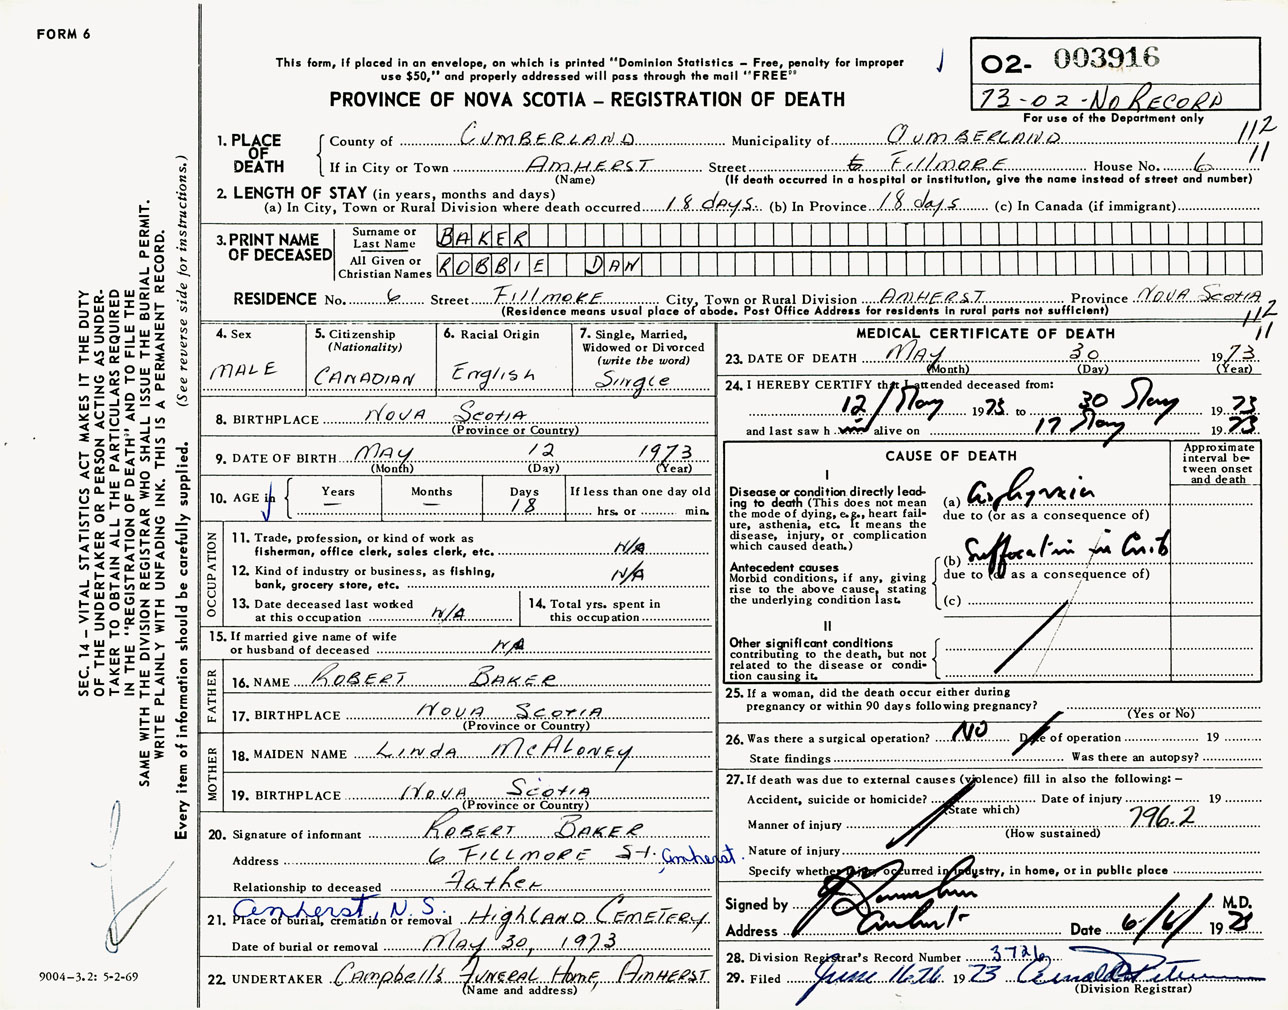 FORM 6
This form, if placed in an envelope, on which is printed "Dominion Statistics – Free, penalty for improper
use $50," and properly addressed will pass through the mail "FREE"
PROVINCE OF NOVA SCOTIA – REGISTRATION OF DEATH
02- 003916
73-02-NO RECORD
For use of the Department only
1. PLACE OF DEATH County of CUMBERLAND Municipality of CUMBERLAND 112
If in City or Town AMHERST Street FILLMORE House No. 6 11
(Name) (If death occurred in a hospital or institution, give the name instead of street and number)
2. LENGTH OF STAY (in years, months and days)
(a) In City, Town or Rural Division where death occurred 18 days. (b) In Province 18 days (c) In Canada (if immigrant)
3. PRINT NAME OF DECEASED Surname or Last Name BAKER
All Given or Christian Names ROBBIE DAN
RESIDENCE No. 6 Street FILLMORE City, Town or Rural Division AMHERST Province NOVA SCOTIA
(Residence means usual place of abode. Post Office Address for residents in rural parts not sufficient)
112
11
4. Sex MALE
5. Citizenship (Nationality) CANADIAN
6. Racial Origin English
7. Single, Married, Widowed or Divorced (write the word) Single
8. BIRTHPLACE NOVA SCOTIA
(Province or Country)
9. DATE OF BIRTH MAY 12 1973
(Month) (Day) (Year)
10. AGE in Years — Months — Days 18 If less than one day old
hrs. or min.
OCCUPATION
11. Trade, profession, or kind of work as
fisherman, office clerk, sales clerk, etc. N/A
12. Kind of industry or business, as fishing,
bank, grocery store, etc. N/A
13. Date deceased last worked
at this occupation N/A
14. Total yrs. spent in
this occupation
15. If married give name of wife
or husband of deceased N/A
FATHER
16. NAME ROBERT BAKER
17. BIRTHPLACE NOVA SCOTIA
(Province or Country)
MOTHER
18. MAIDEN NAME LINDA McALONEY
19. BIRTHPLACE NOVA SCOTIA
(Province or Country)
20. Signature of informant ROBERT BAKER
Address 6 FILLMORE St. Amherst.
Relationship to deceased Father
Amherst, N.S.
21. Place of burial, cremation or removal HIGHLAND CEMETERY
Date of burial or removal MAY 30, 1973
22. UNDERTAKER Campbell's Funeral Home, AMHERST
(Name and address)
MEDICAL CERTIFICATE OF DEATH
23. DATE OF DEATH MAY 30 1973
(Month) (Day) (Year)
24. I HEREBY CERTIFY that I attended deceased from:
12 May 1973 to 30 May 1973
and last saw h im alive on 17 May 1973
CAUSE OF DEATH
Approximate interval between onset and death
I
Disease or condition directly lead-
ing to death (This does not mean
the mode of dying, e.g., heart fail-
ure, asthenia, etc. It means the
disease, injury, or complication
which caused death.)
(a) Asphyxia
due to (or as a consequence of)
Antecedent causes
Morbid conditions, if any, giving
rise to the above cause, stating
the underlying condition last.
(b) Suffocation in Crib
due to (or as a consequence of)
(c)
II
Other significant conditions
contributing to the death, but not
related to the disease or condi-
tion causing it.
25. If a woman, did the death occur either during
pregnancy or within 90 days following pregnancy?
(Yes or No)
26. Was there a surgical operation? NO Date of operation 19
State findings Was there an autopsy?
27. If death was due to external causes (violence) fill in also the following: –
Accident, suicide or homicide? Date of injury 19
(State which)
Manner of injury 796.2
(How sustained)
Nature of injury
Specify whether injury occurred in industry, in home, or in public place
Signed by M.D.
Address Amherst Date 6/6/ 1973
28. Division Registrar's Record Number 3726
29. Filed June 16th 1973
(Division Registrar)
SEC. 14 – VITAL STATISTICS ACT MAKES IT THE DUTY
OF THE UNDERTAKER OR PERSON ACTING AS UNDER-
TAKER TO OBTAIN ALL THE PARTICULARS REQUIRED
IN THE "REGISTRATION OF DEATH" AND TO FILE THE
SAME WITH THE DIVISION REGISTRAR WHO SHALL ISSUE THE BURIAL PERMIT.
WRITE PLAINLY WITH UNFADING INK. THIS IS A PERMANENT RECORD.
Every item of information should be carefully supplied. (See reverse side for instructions.)
9004-3.2: 5-2-69